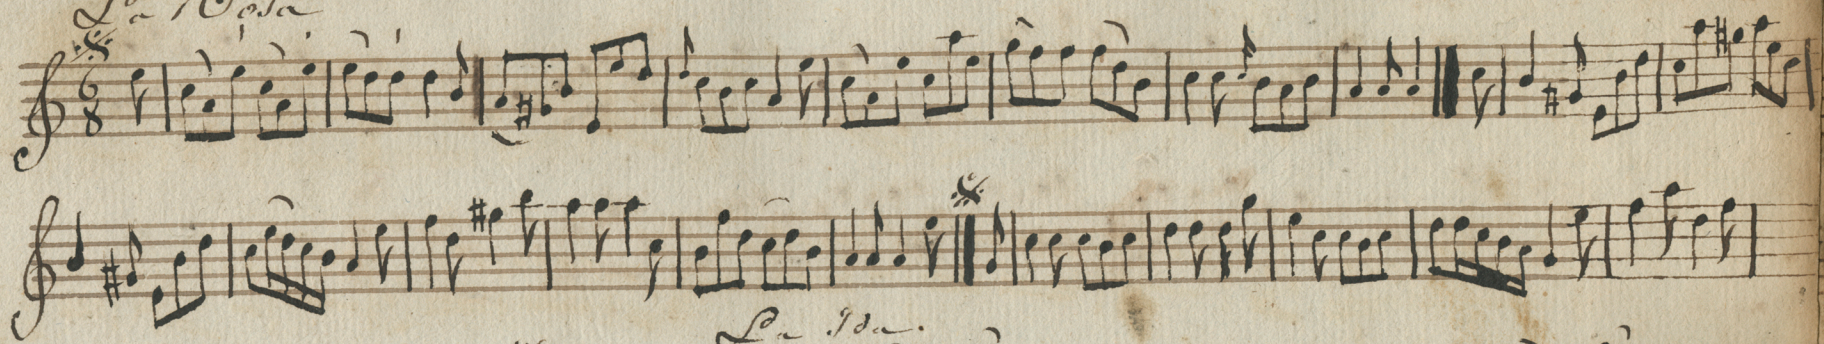 La Rosa
6
8
La Ida.